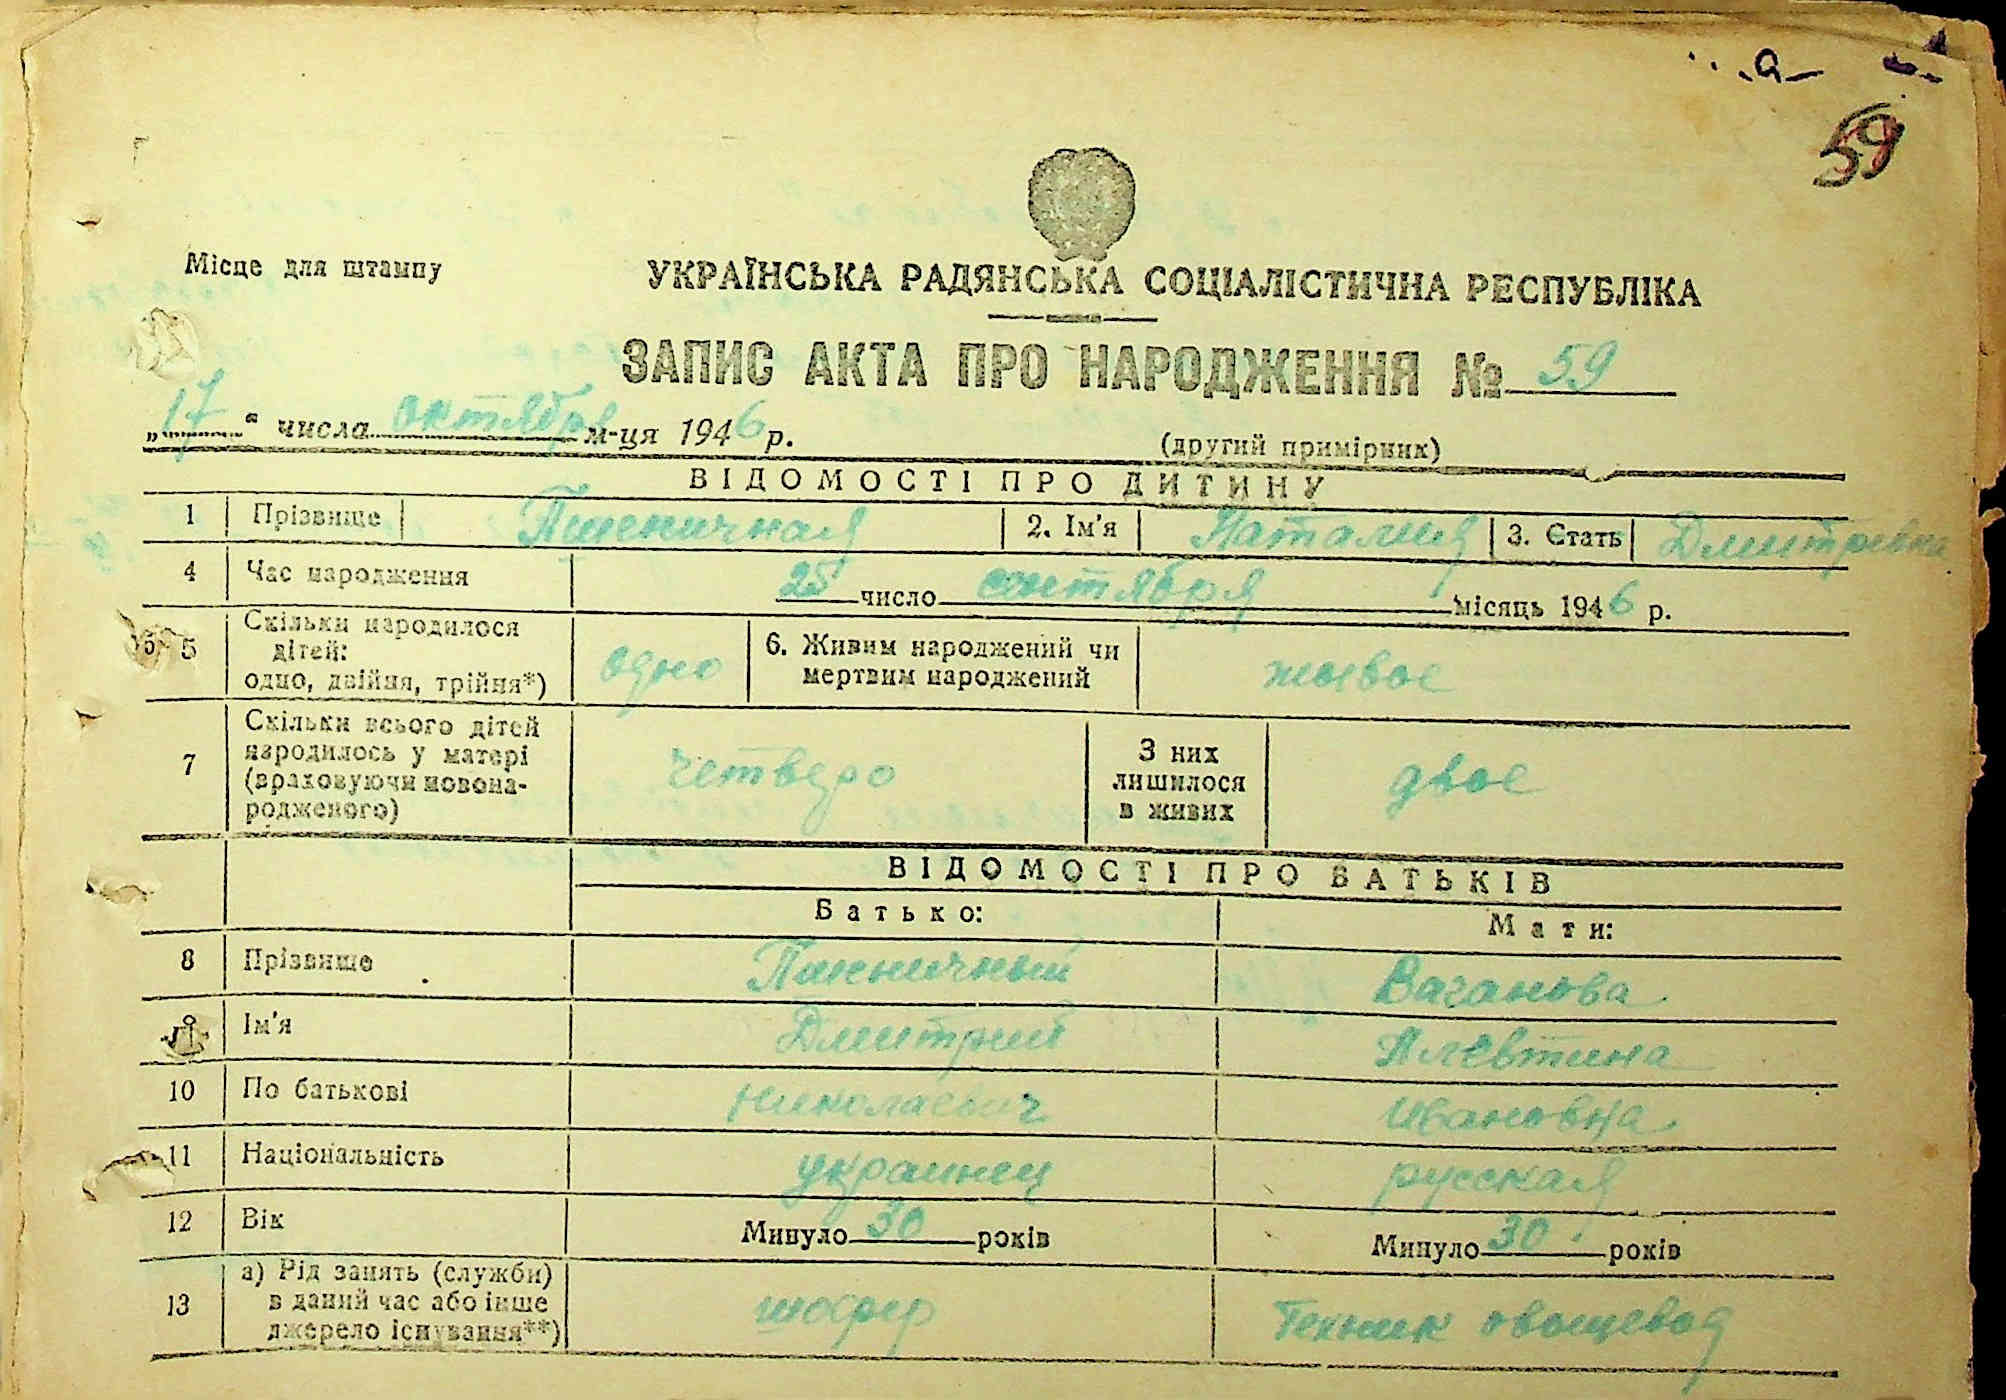 59
Місце для штампу
УКРАЇНСЬКА РАДЯНСЬКА СОЦІАЛІСТИЧНА РЕСПУБЛІКА
ЗАПИС АКТА ПРО НАРОДЖЕННЯ № 59
„17“ числа октября м-ця 1946 р.
(другий примірник)
ВІДОМОСТІ ПРО ДИТИНУ
1 Прізвище Пшеничная 2. Ім'я Наталия 3. Стать Дмитревна
4 Час народження 25 число сентября місяць 1946 р.
5 Скільки народилося дітей: одно, двійня, трійня*) одно 6. Живим народжений чи мертвим народжений живое
7 Скільки всього дітей народилось у матері (враховуючи новонародженого) четверо З них лишилося в живих двое
ВІДОМОСТІ ПРО БАТЬКІВ
Батько: Мати:
8 Прізвище Пшеничный Ваганова
Ім'я Дмитрий Алевтина
10 По батькові Николаевич Ивановна
11 Національність украинец русская
12 Вік Минуло 30 років Минуло 30 років
13 а) Рід занять (служби) в даний час або інше джерело існування**) шофер Техник овощевод